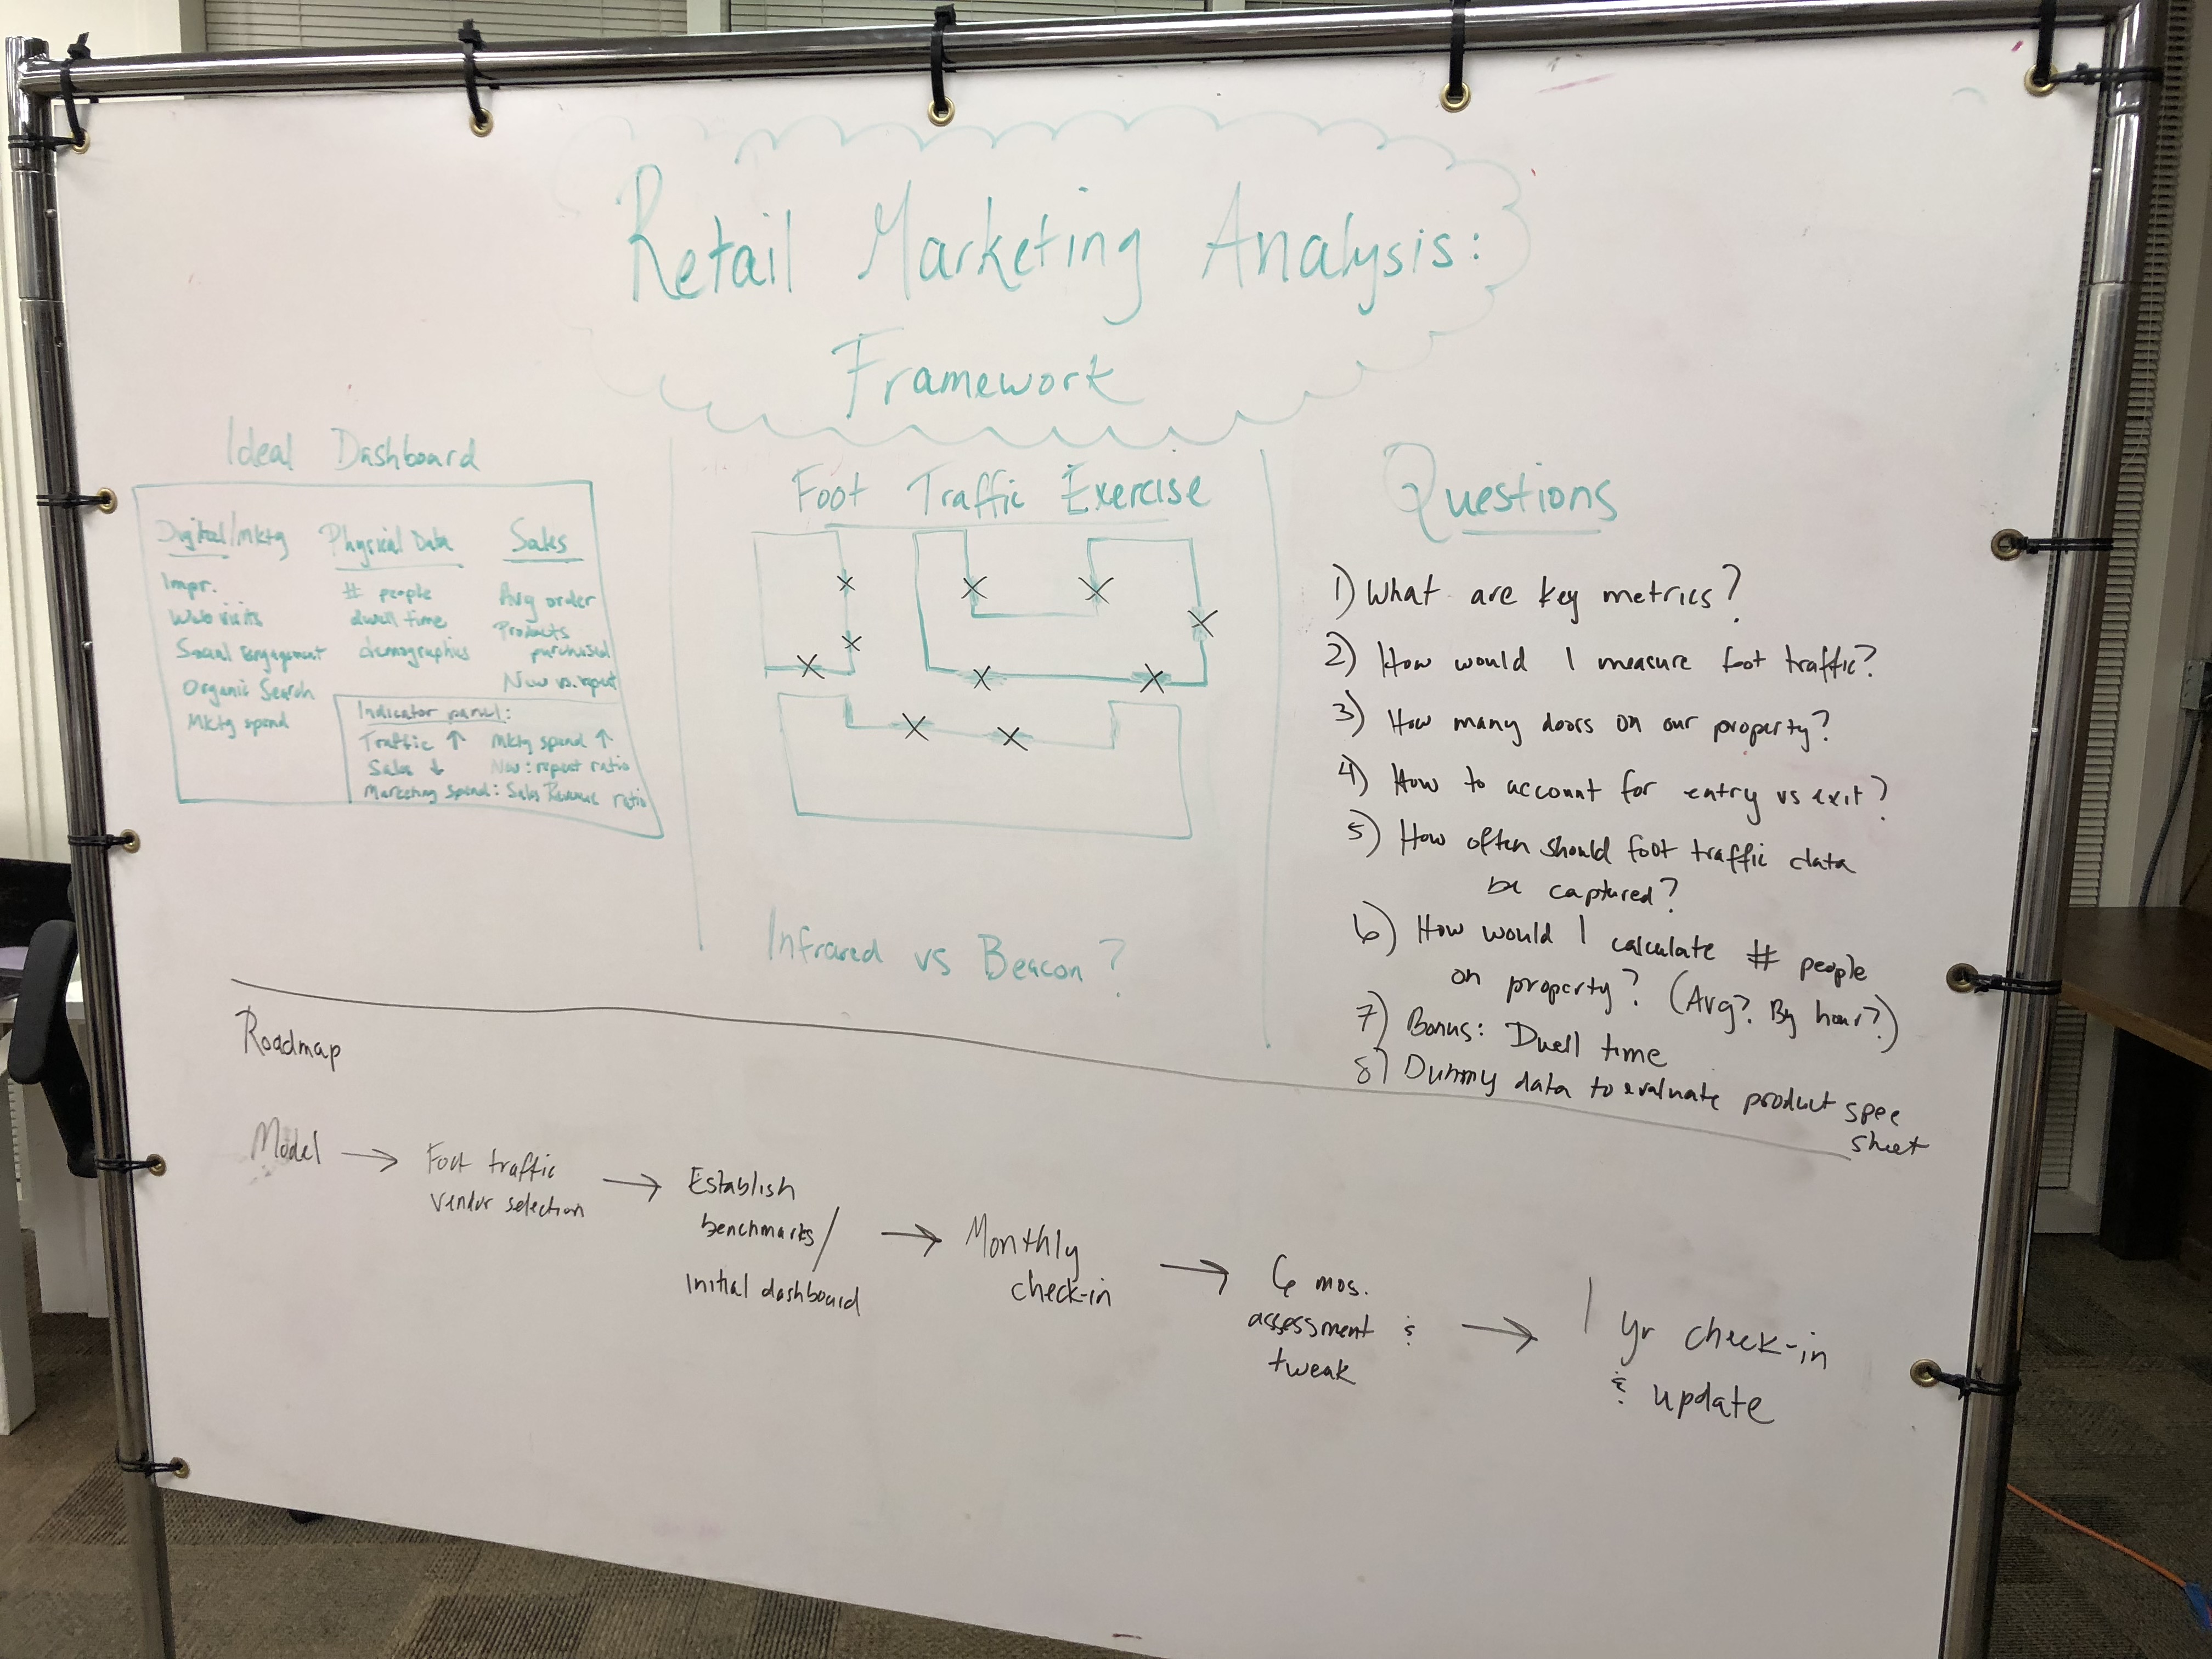 Retail Marketing Analysis:
Framework
Ideal Dashboard
Digital/Mktg
Impr.
Web visits
Social Engagement
Organic Search
Mktg spend
Physical Data
# people
dwell time
demographics
Sales
Avg order
Products
purchased
New vs. repeat
Indicator panel:
Traffic ↑ Mktg spend ↑
Sales ↓ New: repeat ratio
Marketing spend: Sales Revenue ratio
Foot Traffic Exercise
X
X
X
X
X
X
X
X
X
X
Infrared vs Beacon?
Questions
1) What are key metrics?
2) How would I measure foot traffic?
3) How many doors on our property?
4) How to account for entry vs exit?
5) How often should foot traffic data
be captured?
6) How would I calculate # people
on property? (Avg? By hour?)
7) Bonus: Dwell time
8) Dummy data to evaluate product spec
sheet
Roadmap
Model →
Foot traffic
vendor selection →
Establish
benchmarks/
Initial dashboard →
Monthly
check-in →
6 mos.
assessment &
tweak →
1 yr check-in
& update